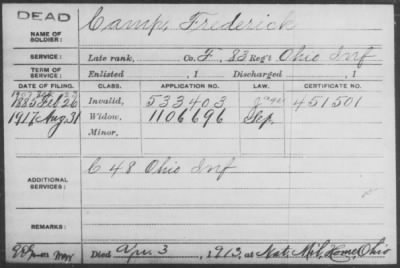 DEAD
NAME OF SOLDIER: Camp, Frederick
SERVICE: Late rank, Co. F, 83 Reg't Ohio Inf
TERM OF SERVICE: Enlisted , 1 Discharged , 1
DATE OF FILING. CLASS. APPLICATION NO. LAW. CERTIFICATE NO.
1885 Feb 26 Invalid, 533403 451501
1917 Aug 31 Widow, 1106696 Sep.
Minor,
ADDITIONAL SERVICES: C 48 Ohio Inf
REMARKS:
Died Apr. 3, 1913, at Nat. Mil. Home, Ohio